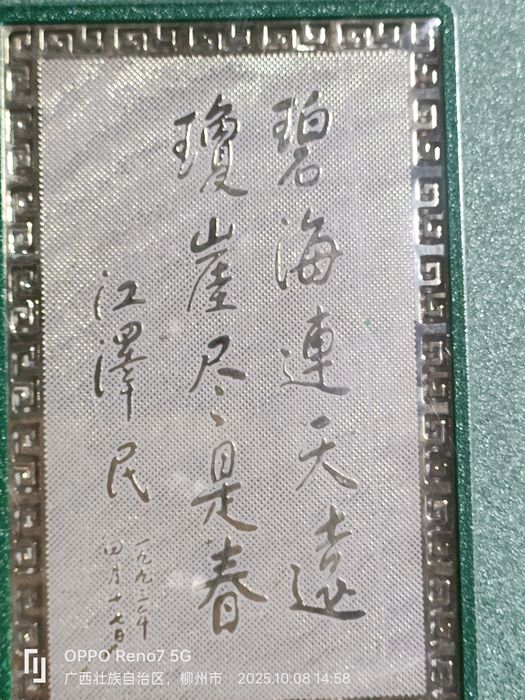 碧海連天遠
瓊崖尽是春
江澤民
一九九三年
四月十七日
OPPO Reno7 5G
广西壮族自治区，柳州市 2025.10.08 14:58